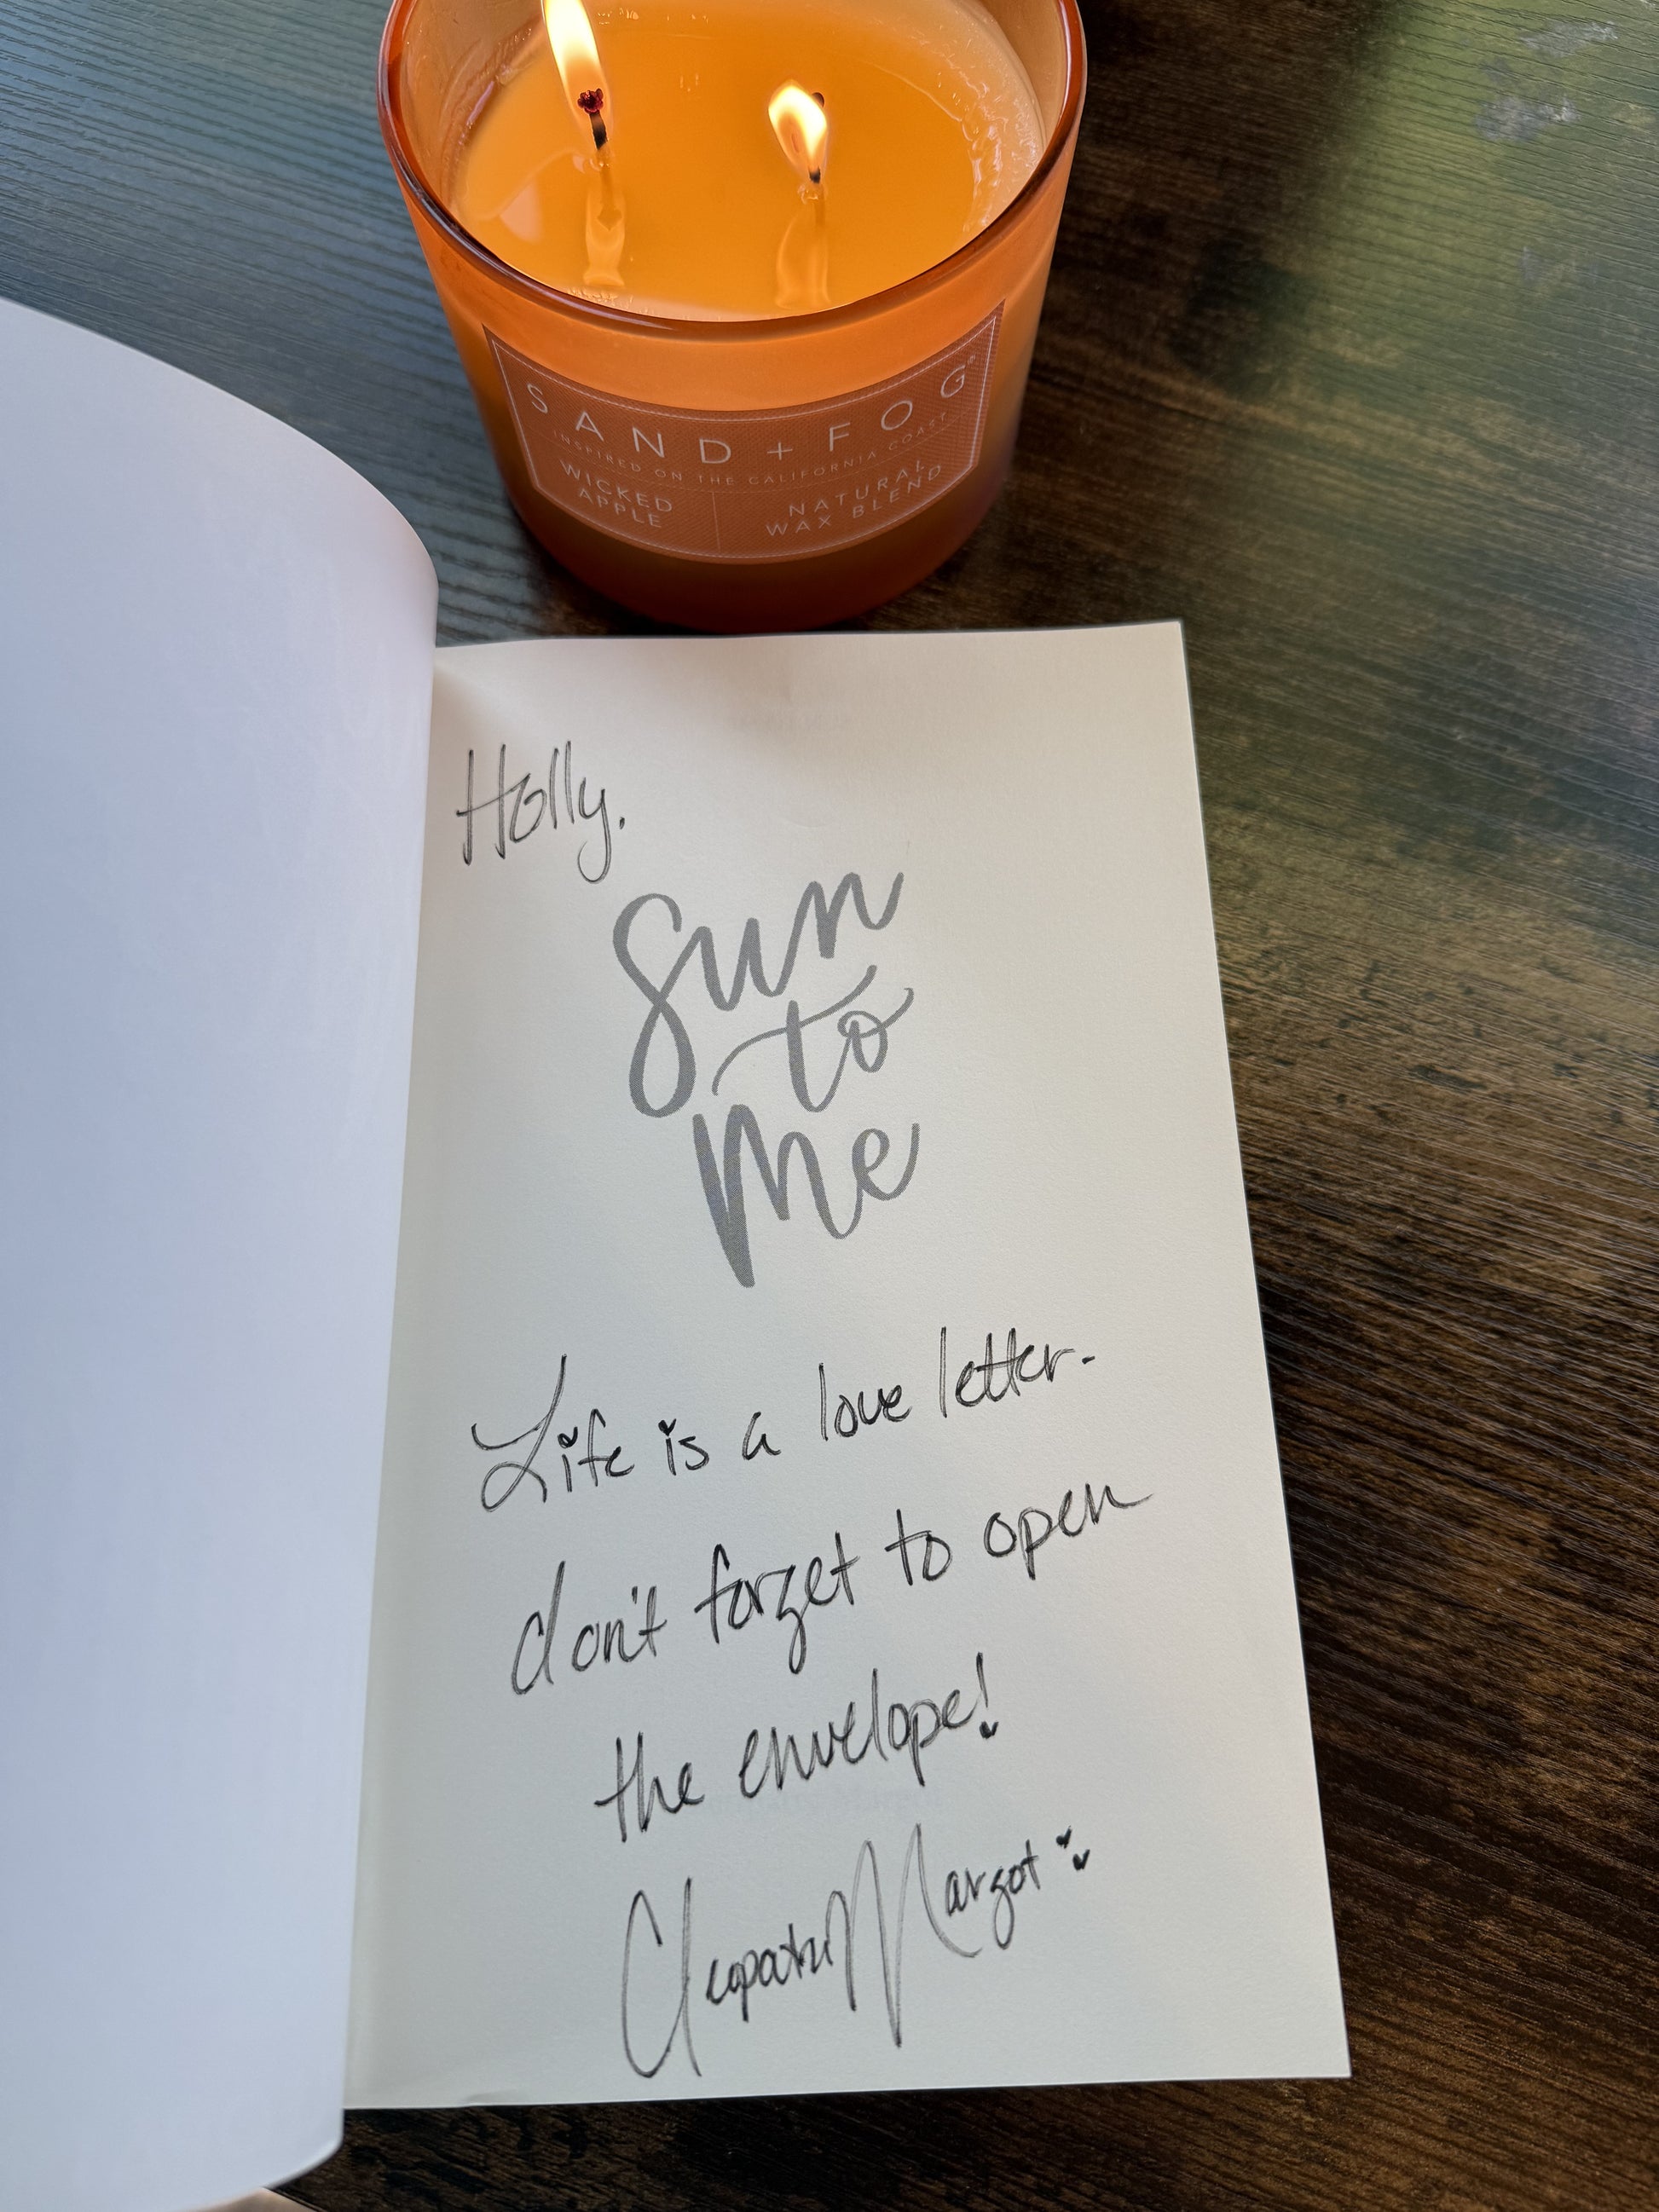 SAND + FOG®
INSPIRED ON THE CALIFORNIA COAST
WICKED
APPLE
NATURAL
WAX BLEND
Holly.
Sun
to
Me
Life is a love letter-
don't forget to open
the envelope!
Cleopatra Margot